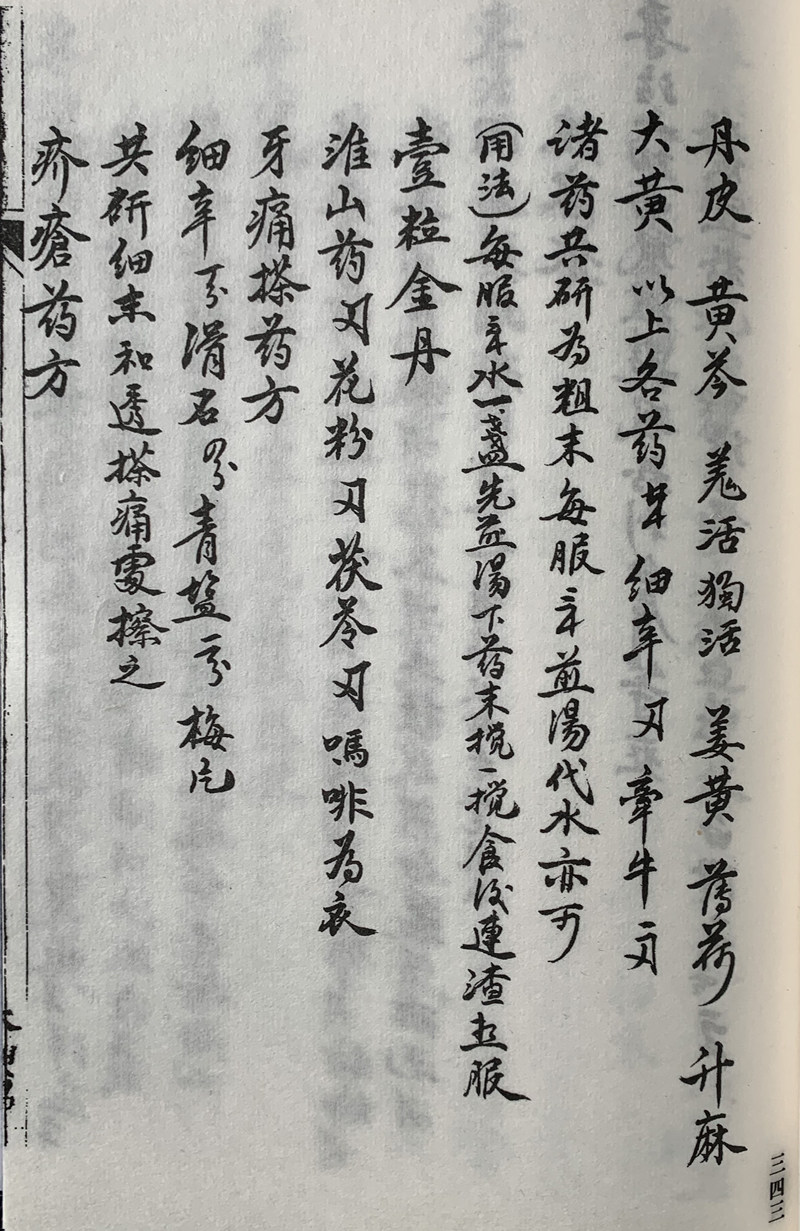 丹皮 黄芩 羌活 獨活 姜黄 薄荷 升麻
大黄 以上各药 细辛 刃 牽牛
诸药共研为粗末每服 煎湯代水亦可
(用法)每服 水一盏先煎湯下药末搅一搅食后連渣 服
壹粒金丹
淮山药刃花粉刃茯苓刃嗎啡为衣
牙痛搽药方
细辛 滑石 青盐 梅片
共研细末和透搽痛處擦之
疥瘡药方
三四三